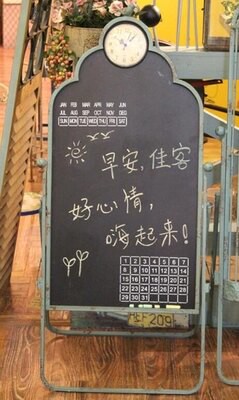 JAN FEB MAR APR MAY JUN
JUL AUG SEP OCT NOV DEC
SUN MON TUE WED THU FRI SAT
早安,佳客
好心情,
嗨起来!
1 2 3 4 5 6 7
8 9 10 11 12 13 14
15 16 17 18 19 20 21
22 23 24 25 26 27 28
29 30 31